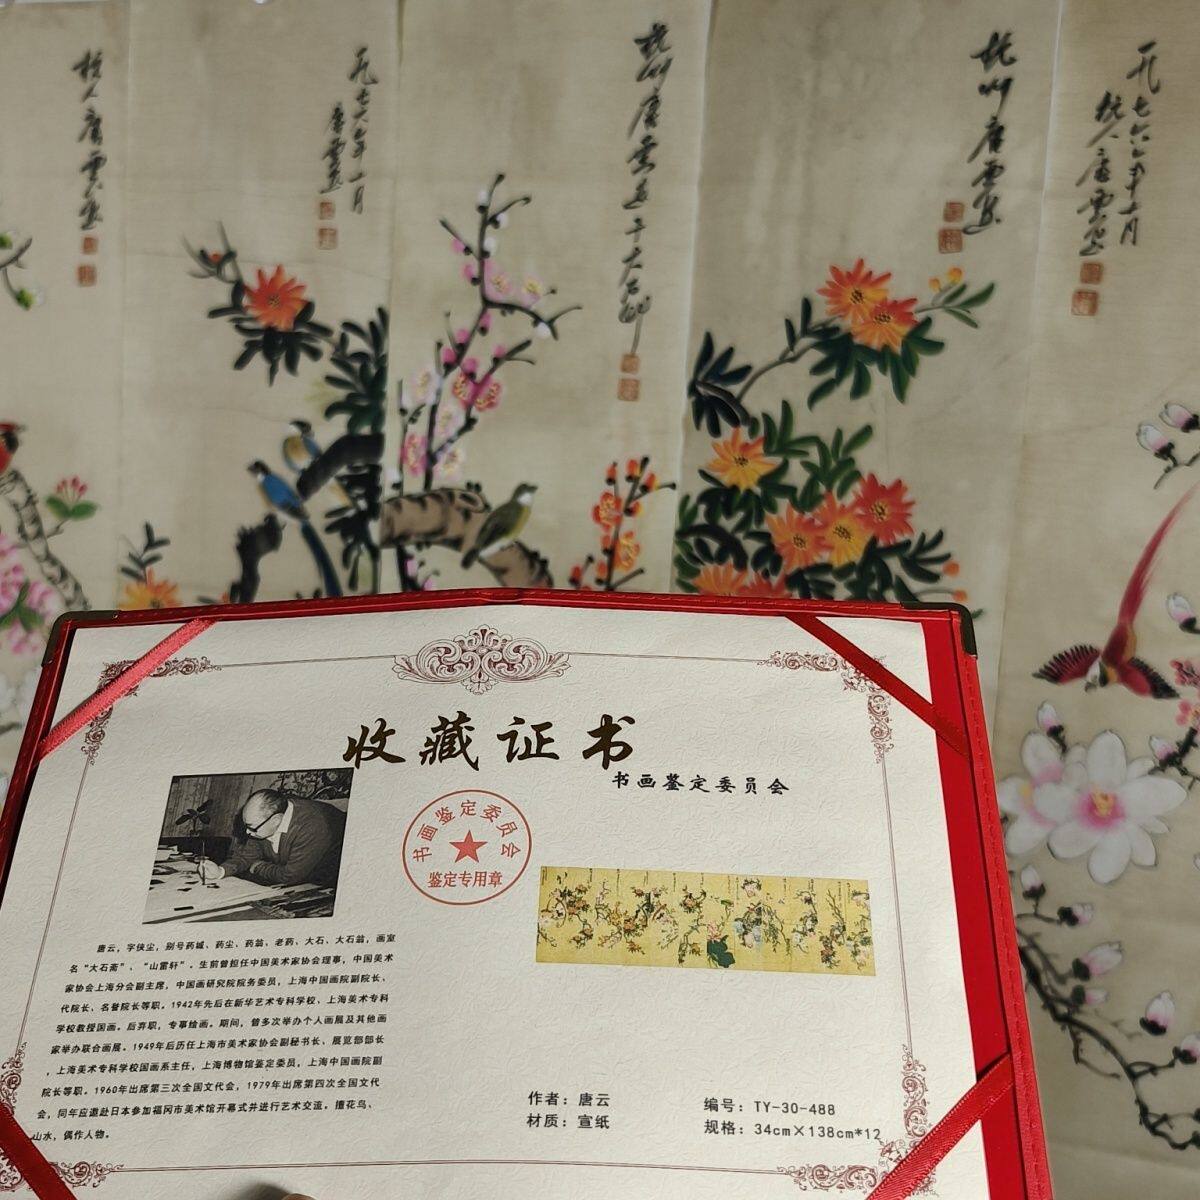 杭人唐云画
一九七六年十月
唐云画
杭州唐云画于大石斋
杭州唐云画
一九七六年十月
杭人唐云画
收藏证书
书画鉴定委员会
书画鉴定委员会
鉴定专用章
唐云，字侠尘，别号药城、药尘、药翁、老药、大石、大石翁，画室
名“大石斋”、“山雷轩”。生前曾担任中国美术家协会理事，中国美术
家协会上海分会副主席，中国画研究院院务委员，上海中国画院副院长、
代院长、名誉院长等职。1942年先后在新华艺术专科学校、上海美术专科
学校教授国画。后弃职，专事绘画。期间，曾多次举办个人画展及其他画
家举办联合画展。1949年后历任上海市美术家协会副秘书长、展览部部长
，上海美术专科学校国画系主任，上海博物馆鉴定委员，上海中国画院副
院长等职。1960年出席第三次全国文代会，1979年出席第四次全国文代
会，同年应邀赴日本参加福冈市美术馆开幕式并进行艺术交流。擅花鸟、
山水，偶作人物。
作者：唐云
材质：宣纸
编号：TY-30-488
规格：34cm×138cm*12